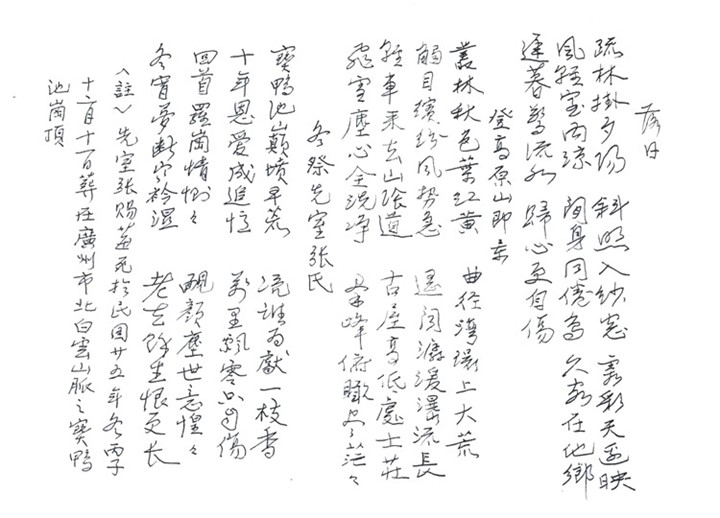 落日
疏林掛夕陽 斜照入紗窗 霞彩天邊映
風輕室內涼 閒身同倦鳥 久客在他鄉
遲暮驚流水 歸心更自傷
登高原山即景
叢林秋色葉紅黃 曲徑灣環上大荒
觸目繽紛風勢急 遥聞潺湲瀑流長
輕車乘去山陰道 古屋高低處士莊
飛塵心全洗淨 峰俯瞰茫々
冬祭先室張氏
寶鴨池巔墳早荒 憑誰為獻一枝香
十年恩愛成追憶 萬里飄零只自傷
回首羅崗情惻々 靦顏塵世意惶々
冬宵夢斷穴衾濕 老去餘生恨更長
〈註〉先室張賜死於民國廿五年冬丙子
十二月十一日葬在廣州市北白雲山脈之寶鴨
池崗頂